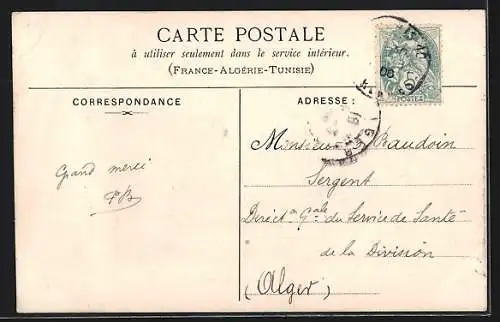 CARTE POSTALE
à utiliser seulement dans le service intérieur.
(FRANCE-ALGÉRIE-TUNISIE)
CORRESPONDANCE
ADRESSE :
POSTES
Grand merci
PB
Monsieur Baudoin
Sergent
Directon Gale du Service de Santé
de la Division
(Alger)